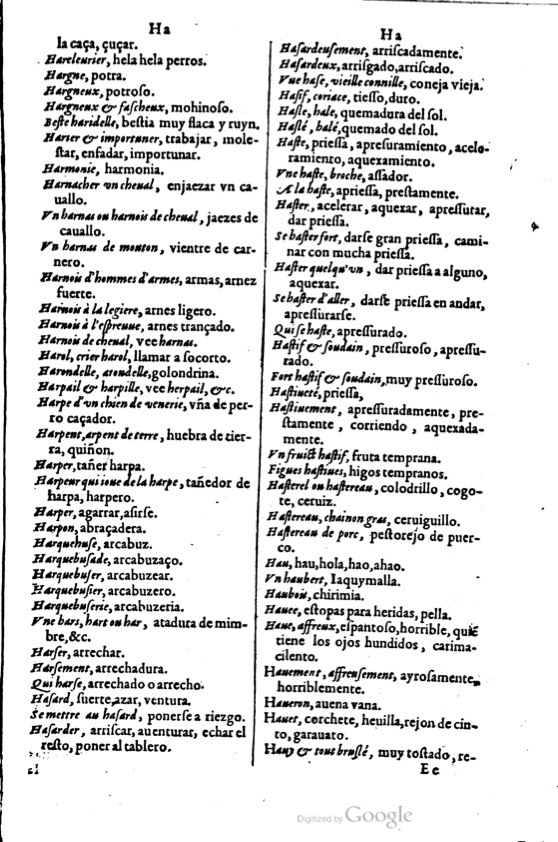 Ha
la caça, çuçar.
Hareleurier, hela hela perros.
Hargne, potra.
Hargneux, potroso.
Hargneux & fascheux, mohinoso.
Beste haridelle, bestia muy flaca y ruyn.
Harier & importuner, trabajar, mole-
star, enfadar, importunar.
Harmonie, harmonia.
Harnacher vn cheual, enjaezar vn ca-
uallo.
Vn harnas ou harnois de cheual, jaezes de
cauallo.
Vn harnas de mouton, vientre de car-
nero.
Harnois d'hommes d'armes, armas, arnez
fuerte.
Harnois à la legiere, arnes ligero.
Harnois à l'espreuue, arnes trançado.
Harnois de cheual, vee harnas.
Harol, crier harol, llamar a socorto.
Harondelle, arondelle, golondrina.
Harpail & harpille, vee herpail, &c.
Harpe d'vn chien de venerie, vña de per-
ro caçador.
Harpent, arpent de terre, huebra de tier-
ra, quiñon.
Harper, tañer harpa.
Harpeur qui ioue de la harpe, tañedor de
harpa, harpero.
Harper, agarrar, asirse.
Harpon, abraçadera.
Harquebuse, arcabuz.
Harquebusade, arcabuzaço.
Harquebuser, arcabuzear.
Harquebusier, arcabuzero.
Harquebuserie, arcabuzeria.
Vne hars, hart ou har, atadura de mim-
bre, &c.
Harser, arrechar.
Harsement, arrechadura.
Qui harse, arrechado o arrecho.
Hasard, suerte, azar, ventura.
Se mettre au hasard, ponerse a riezgo.
Hasarder, arriscar, auenturar, echar el
resto, poner al tablero.
Ha
Hasardeusement, arriscadamente.
Hasardeux, arrisgado, arriscado.
Vue hase, vieille connille, coneja vieja.
Hasif, coriace, tiesso, duro.
Hasle, hale, quemadura del sol.
Haslé, halé, quemado del sol.
Haste, priessa, apresuramiento, acele-
ramiento, aquexamiento.
Vne haste, broche, assador.
A la haste, apriessa, prestamente.
Haster, acelerar, aquexar, apressurar,
dar priessa.
Se haster fort, darse gran priessa, cami-
nar con mucha priessa.
Haster quelqu'vn, dar priessa a alguno,
aquexar.
Se haster d'aller, darse priessa en andar,
apressurarse.
Qui se haste, apressurado.
Hastif & soudain, pressuroso, apressu-
rado.
Fort hastif & soudain, muy pressuroso.
Hastiueté, priessa,
Hastiuement, apressuradamente, pre-
stamente, corriendo, aquexada-
mente.
Vn fruict hastif, fruta temprana.
Figues hastiues, higos tempranos.
Hasterel ou hastereau, colodrillo, cogo-
te, ceruiz.
Hastereau, chainon gras, ceruiguillo.
Hastereau de porc, pestorejo de puer-
co.
Hau, hau, hola, hao, ahao.
Vn haubert, Iaquymalla.
Haubois, chirimia.
Hauee, estopas para heridas, pella.
Haue, affreux, espantoso, horrible, quiē
tiene los ojos hundidos, carima-
cilento.
Hauement, affreusement, ayrosamente,
horriblemente.
Haueron, auena vana.
Hauet, corchete, heuilla, rejon de cin-
to, garauato.
Hauy & tout bruslé, muy tostado, re-
Ee
Digitized by Google